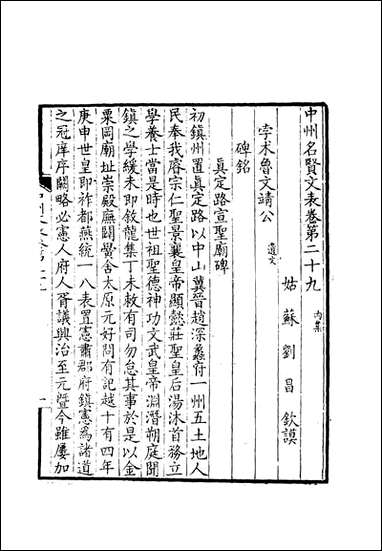 中州名賢文表卷第二十九 內集
姑蘇劉昌欽謨
孛术魯文靖公 遺文
碑銘
真定路宣聖廟碑
初鎮州置真定路以中山冀晉趙深蠡府一州五土地人
民奉我睿宗仁聖景襄皇帝顯懿莊聖皇后湯沐首務立
學養士當是時也世祖聖德神功文武皇帝淵潛朔庭聞
鎮之學緩未即敘龍集丁未敕有司勿怠其事於是以金
粟岡廟址崇殿廡闢黌舍太原元好問有記越十有四年
庚申世皇即祚都燕統一八表置憲肅郡府鎮憲為諸道
之冠庠序闕略必憲人府人胥議興治至元暨今雖屢加